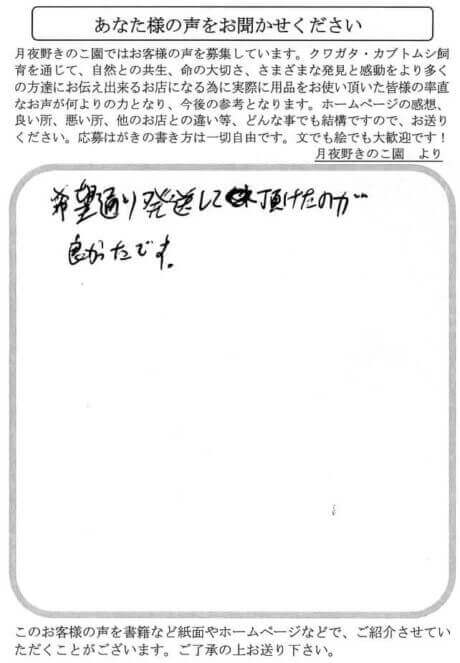 あなた様の声をお聞かせください
月夜野きのこ園ではお客様の声を募集しています。クワガタ・カブトムシ飼
育を通じて、自然との共生、命の大切さ、さまざまな発見と感動をより多く
の方達にお伝え出来るお店になる為に実際に用品をお使い頂いた皆様の率直
なお声が何よりの力となり、今後の参考となります。ホームページの感想、
良い所、悪い所、他のお店との違い等、どんな事でも結構ですので、お送り
ください。応募はがきの書き方は一切自由です。文でも絵でも大歓迎です！
月夜野きのこ園　より
希望通り発送して頂けたのが
良かったです。
このお客様の声を書籍など紙面やホームページなどで、ご紹介させてい
ただくことがございます。ご了承の上お送り下さい。